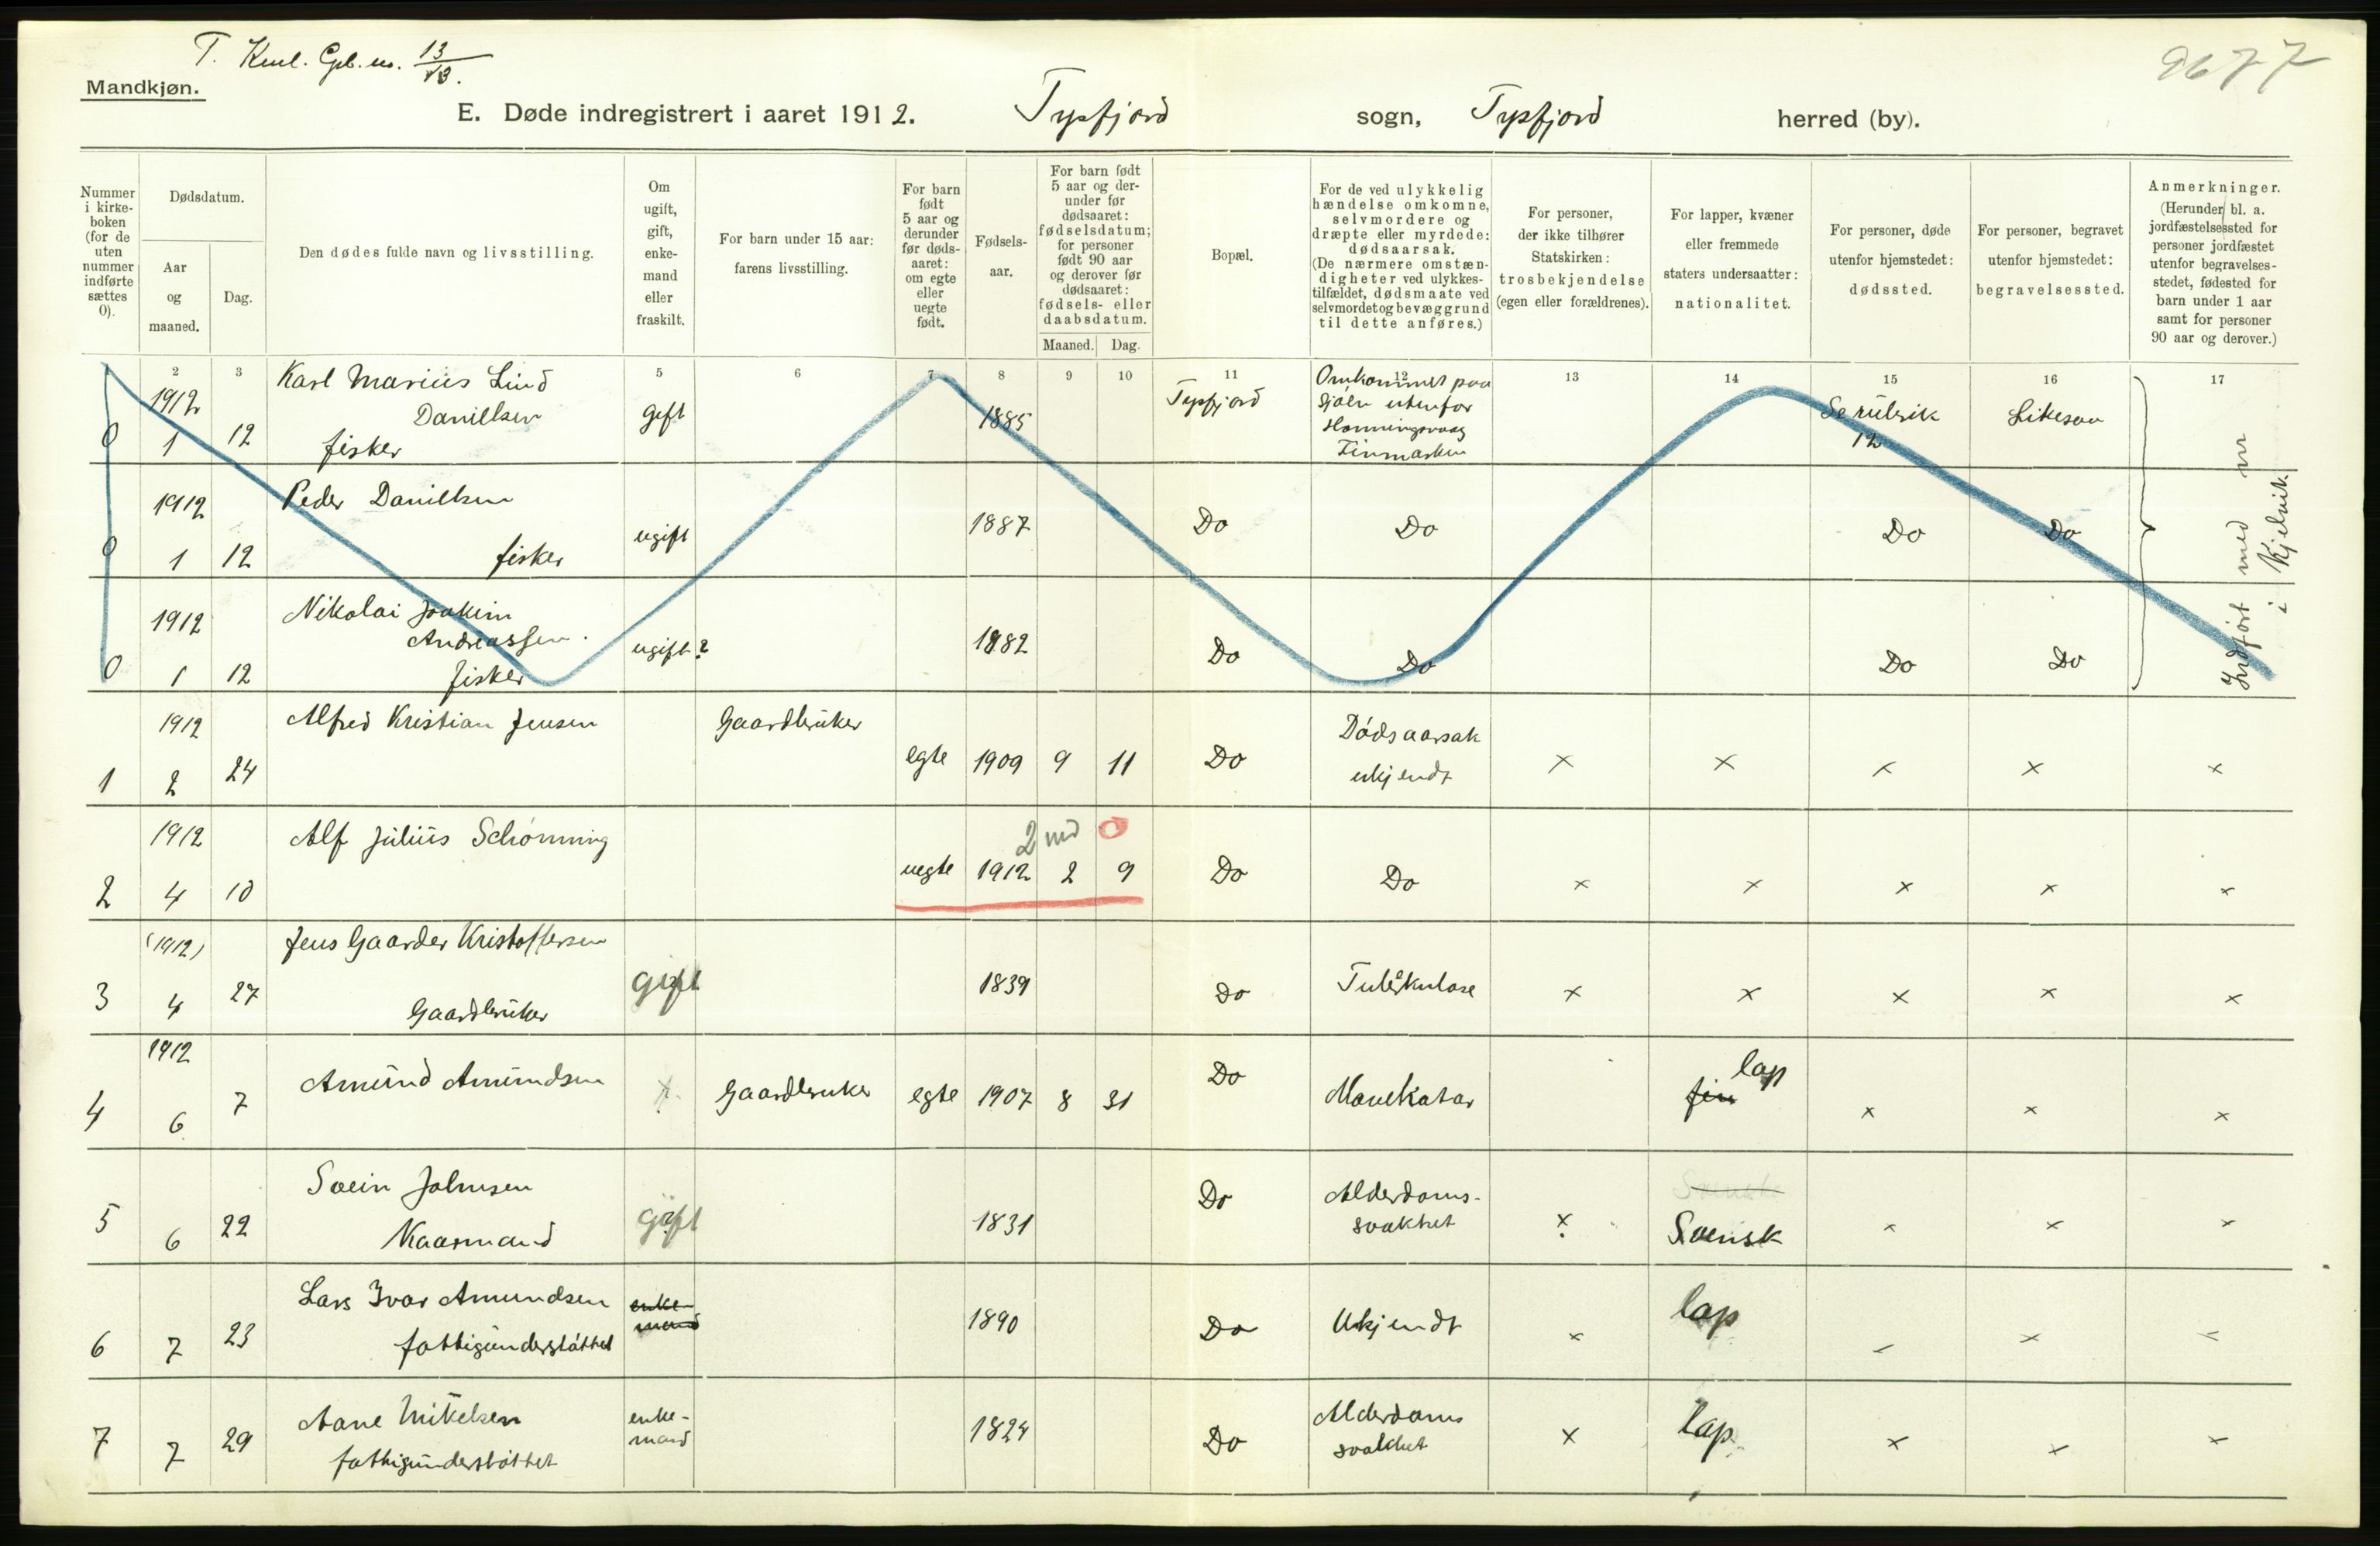 T. Kml. Geb. no. 13/13.
9677
Mandkjøn.
E. Døde indregistrert i aaret 1912. Tysfjord sogn, Tysfjord herred (by).
Nummer i kirkeboken (for de uten nummer indførte sættes 0).
Dødsdatum.
Aar og maaned.
Dag.
Den dødes fulde navn og livsstilling.
Om ugift, gift, enkemand eller fraskilt.
For barn under 15 aar: farens livsstilling.
For barn født 5 aar og derunder før dødsaaret: om egte eller uegte født.
Fødselsaar.
For barn født 5 aar og derunder før dødsaaret: fødselsdatum; for personer født 90 aar og derover før dødsaaret: fødsels- eller daabsdatum.
Maaned. Dag.
Bopæl.
For de ved ulykkelig hændelse omkomne, selvmordere og dræpte eller myrdede: dødsaarsak. (De nærmere omstændigheter ved ulykkestilfældet, dødsmaate ved selvmordet og bevæggrund til dette anføres.)
For personer, der ikke tilhører Statskirken: trosbekjendelse (egen eller forældrenes).
For lapper, kvæner eller fremmede staters undersaatter: nationalitet.
For personer, døde utenfor hjemstedet: dødssted.
For personer, begravet utenfor hjemstedet: begravelsessted.
Anmerkninger. (Herunder bl. a. jordfæstelsessted for personer jordfæstet utenfor begravelsesstedet, fødested for barn under 1 aar samt for personer 90 aar og derover.)
2 3 5 6 7 8 9 10 11 12 13 14 15 16 17
0 1912 1 12 Karl Marius Lind Daniellsen fisker gift 1885 Tysfjord Omkommet paa sjøen utenfor Honningsvaag Finmarken Se rubrik 12 Likesaa
0 1912 1 12 Peder Daniellsen fisker ugift 1887 Do Do Do Do
0 1912 1 12 Nikolai Joakim Andreassen. fisker ugift? 1882 Do Do Do Do
Indført med nr i Kjelvik
1 1912 2 24 Alfred Kristian Jensen Gaardbruker egte 1909 9 11 Do Dødsaarsak ukjendt × × × × ×
2 1912 4 10 Alf Julius Schønning uegte 1912 2 9 Do Do × × × × ×
2 md 0
3 (1912) 4 27 Jens Gaarder Kristoffersen Gaardbruker gift 1839 Do Tuberkulose × × × × ×
4 1912 6 7 Amund Amundsen × Gaardbruker egte 1907 8 31 Do Mavekatar fin lap × × ×
5 6 22 Svein Johnsen Kaarmand gift 1831 Do Alderdomssvakhet × Svensk × × ×
6 7 23 Lars Ivar Amundsen fattigunderstøttet enkemand 1890 Do Ukjendt × lap × × ×
7 7 29 Aane Mikelsen fattigunderstøttet enkemand 1824 Do Alderdoms svakhet × lap × × ×